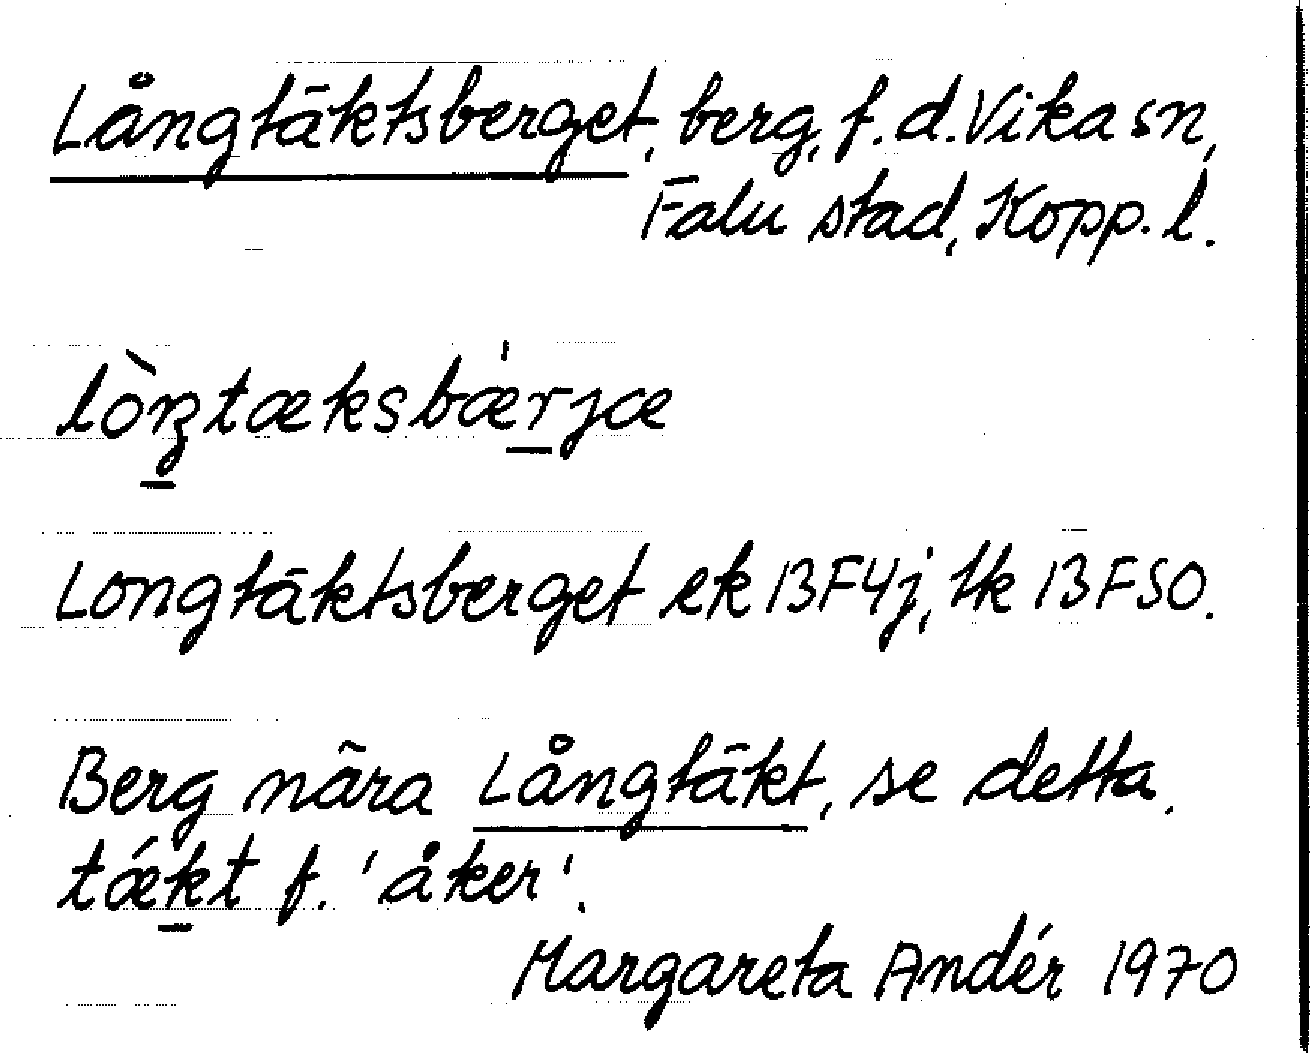 Långtäktsberget, berg, f. d. Vika sn,
Falu stad, Kopp. l.
lòŋtæksbæ̍rjæ
Longtäktsberget ek 13F4j, tk 13FSO.
Berg nära Långtäkt, se detta.
tǽkt f. 'åker'.
Margareta Andér 1970